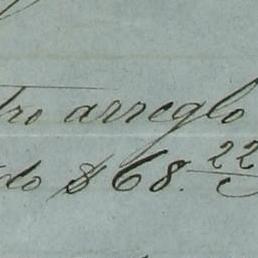 tro arreglo
do $68.22